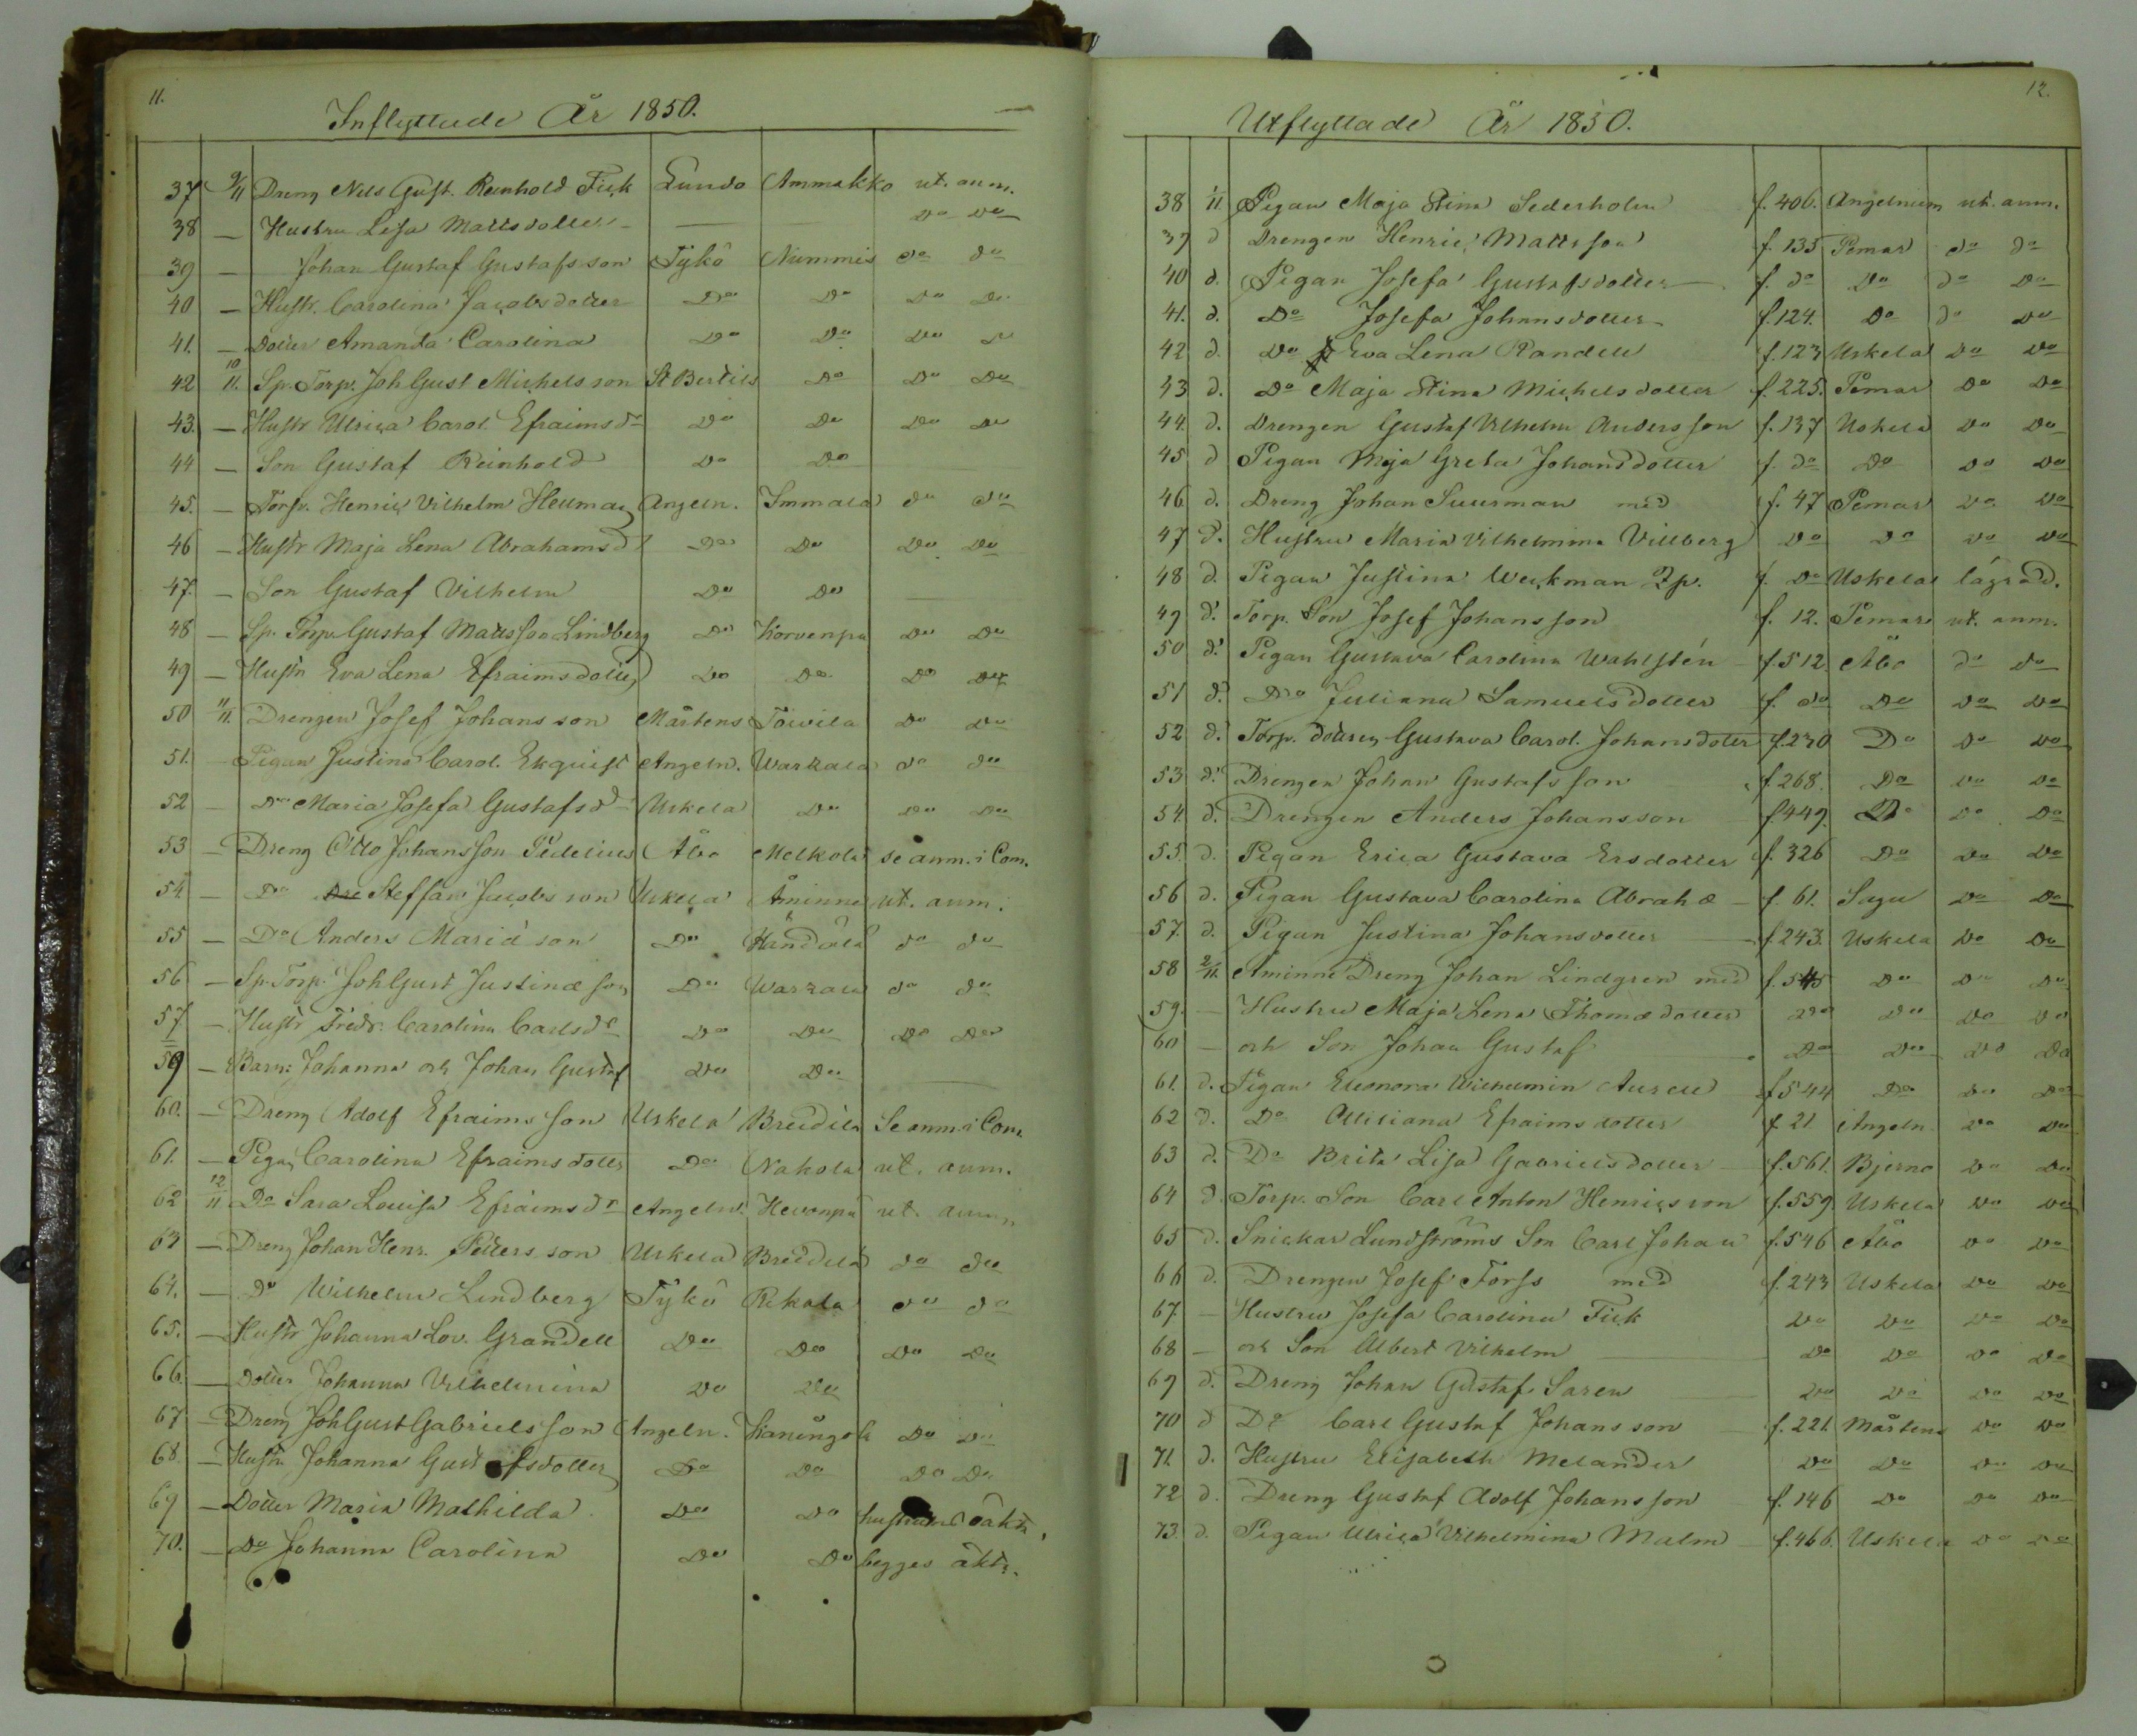 11.
Inflyttade År 1850.
37 9/11 Dreng Nils Gust. Reinhold Fick Lundo Ammakko ut. anm.
38 — Hustru Lisa Mattsdotter — — Do Do
39 — Johan Gustaf Gustafsson Tykö Nummis do do
40 — Hustr. Carolina Jacobsdotter Do Do Do Do
41. — Dotter Amanda Carolina Do Do Do Do
42 10/11. Sp. Torp. Joh Gust Michelsson St Bertils Do Do Do
43. — Hustr Ulrica Carol. Efraimsdr Do Do Do Do
44 — Son Gustaf Reinhold Do Do
45. — Torp. Henric Vilhelm Heuman Angeln. Immala do do
46 — Hustr Maja Lena Abrahamsdr Do Do Do Do
47. — Son Gustaf Vilhelm Do Do —
48 — Sp. Torp. Gustaf Mattsson Lindberg Do Korvenpä Do Do
49 — Hustr Eva Lena Efraimsdotter Do Do Do Do
50 11/11. Drengen Josef Johansson Mårtens Toivila Do Do
51. — Pigan Justina Carol. Ekquist Angeln. Warkala do do
52 — Do Maria Josefa Gustafsdr Uskela Do Do Do
53 — Dreng Otto Johansson Pedelius Åbo Melkola se anm. i Com.
54. — Do Steffan Jacobsson Uskela Åminne ut. anm.
55 — Do Anders Mariæson Do Händälä do do
56 — Sp. Torp. Joh Gust Justinæson Do Warkala do do
57 — Hustr Fredr. Carolina Carlsdr Do Do Do Do
59 — Barn: Johanna och Johan Gustaf Do Do —
60. — Dreng Adolf Efraimsson Uskela Breidila Se anm. i Com.
61. — Pigan Carolina Efraimsdotter Do Nakola ut. anm.
62 12/11 Do Sara Louisa Efraimsdr Angeln. Hevonpä ut. anm.
63 — Dreng Johan Henr. Pettersson Uskela Breidila do do
64. — Do Wilhelm Lindberg Tykö Rekola do do
65. — Hustr Johanna Lov. Grandell Do Do Do Do
66. — Dotter Johanna Vilhelmina Do Do
67 — Dreng Joh Gust Gabrielsson Angeln. Kaningola Do Do
68. — Hustr Johanna Gustafsdotter Do Do Do Do
69 — Dotter Maria Mathilda Do Do hustruns oäkta,
70. — Do Johanna Carolina Do Do begges äkta.
12.
Utflyttade År 1850.
38 1/11 Pigan Maja Stina Sederholm f. 406. Angelniem ut. anm.
39 d Drengen Henric Mattsson f. 135 Pemar do do
40 d. Pigan Josefa Gustafsdotter — f. do Do do Do
41. d. Do Josefa Johansdotter f. 124. Do do Do
42 d. Do Eva Lena Randell f. 123 Uskela Do Do
43 d. Do Maja Stina Michelsdotter f. 225. Pemar Do Do
44. d. Drengen Gustaf Vilhelm Andersson f. 137 Uskela Do Do
45 d Pigan Maja Greta Johansdotter f. do Do Do Do
46 d. Dreng Johan Suurman med f. 47 Pemar Do Do
47 d. Hustru Maria Vilhelmina Villberg Do Do Do Do
48 d. Pigan Justina Weckman f. Do Uskela
49 d. Torp. Son Josef Johansson f. 12. Pemar ut. anm.
50 d. Pigan Gustava Carolina Wahlstén f. 512. Åbo do Do
51 d. Do Juliana Samuelsdotter f. do Do Do Do
52 d. Torp. dottren Gustava Carol. Johansdotter f. 230 Do Do Do
53 d. Drengen Johan Gustafsson f. 268. Do Do Do
54 d. Drengen Anders Johansson f. 449. Do Do Do
55. d. Pigan Erica Gustava Ersdotter f. 326 Do Do Do
56 d. Pigan Gustava Carolina Abrahæ — f. 61. Sagu Do Do
57. d. Pigan Justina Johansdotter — f. 243. Uskela Do Do
58 2/11. Åminne Dreng Johan Lindgren med f. 545 Do Do Do
59. — Hustru Maja Lena Thomædotter Do Do Do Do
60 — och Son Johan Gustaf Do Do Do Do
61. d. Pigan Eleonora Wilhelmin Aurell f. 544 Do Do Do
62 d. Do Ulliana Efraimsdotter f. 21. Angeln. Do Do
63 d. Do Brita Lisa Gabrielsdotter — f. 561. Bjerno Do Do
64 d. Torp. Son Carl Anton Henricsson f. 559 Uskela Do Do
65 d. Snickar Lundströms Son Carl Johan f. 546 Åbo Do Do
66 d. Drengen Josef Forss med f. 243 Uskela Do Do
67 — Hustru Josefa Carolina Fick Do Do Do Do
68 — och Son Albert Vilhelm — Do Do Do Do
69 d. Dreng Johan Gustaf Saren — Do Do Do Do
70 d Do Carl Gustaf Johansson — f. 221. Mårtens Do Do
71. d. Hustru Elisabeth Melander Do Do Do Do
72 d. Dreng Gustaf Adolf Johansson f. 146 Do Do Do
73. d. Pigan Ulrica Vilhelmina Malm — f. 466. Uskela Do Do